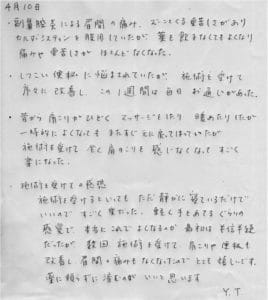 4月10日
・副鼻腔炎による眉間の痛み、おこってくる重苦しさがあり
カルボシステインを服用していたが、薬を飲まなくてもよくなり
痛みや重苦しさが ほとんどなくなった。
・しつこい便秘に悩まされていたが、施術を受けて
序々に改善し、この1週間は毎日お通じがあった。
・昔から肩こりがひどく マッサージをしたり 鍼あたりしたが
一時的によくなっても またすぐ元に戻ってしまっていたが
施術を受けて 全く肩のこりも感じなくなって すごく
楽になった。
・施術を受けての感想
施術を受けるといっても ただ静かに寝ているだけで
いいので すごく楽だった。 軽く手をあてるぐらいの
感覚で、本当にこれで よくなるのか 最初は半信半疑
だったが 数回 施術を受けて 肩こりや便秘も
改善し 眉間の痛みもなくなったので とても嬉しいです。
薬に頼らずに 済むのが いいと思います
Y.T